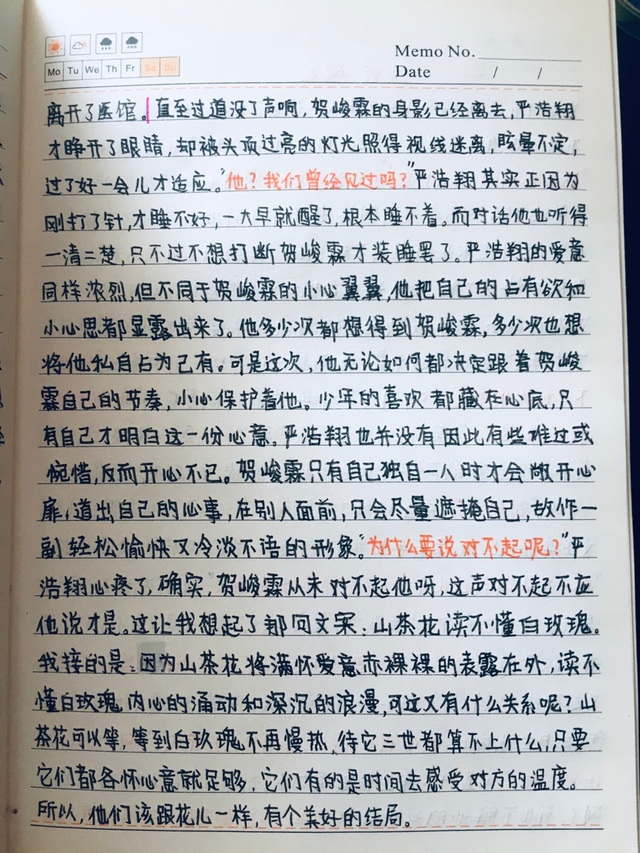 Memo No.
Mo Tu We Th Fr Sa Su
Date / /
离开了医馆。直至过道没了声响,贺峻霖的身影已经离去,严浩翔
才睁开了眼睛,却被头顶过亮的灯光照得视线迷离,眩晕不定,
过了好一会儿才适应。“他?我们曾经见过吗?”严浩翔其实正因为
刚打了针,才睡不好,一大早就醒了,根本睡不着。而对话他也听得
一清二楚,只不过不想打断贺峻霖才装睡罢了。严浩翔的爱意
同样浓烈,但不同于贺峻霖的小心翼翼,他把自己的占有欲和
小心思都显露出来了。他多少次都想得到贺峻霖,多少次也想
将他私自占为己有。可是这次,他无论如何都决定跟着贺峻
霖自己的节奏,小心保护着他。少年的喜欢都藏在心底,只
有自己才明白这一份心意。严浩翔也并没有因此有些难过或
惋惜,反而开心不已。贺峻霖只有自己独自一人时才会敞开心
扉,道出自己的心事,在别人面前,只会尽量遮掩自己,故作一
副轻松愉快又冷淡不语的形象。“为什么要说对不起呢?”严
浩翔心疼了,确实,贺峻霖从未对不起他呀,这声对不起不应
他说才是。这让我想起了那问文案:山茶花读不懂白玫瑰。
我接的是:因为山茶花将满怀爱意赤裸裸的表露在外,读不
懂白玫瑰内心的涌动和深沉的浪漫,可这又有什么关系呢?山
茶花可以等,等到白玖瑰不再慢热,待它三世都算不上什么,只要
它们都各怀心意就足够,它们有的是时间去感受对方的温度。
所以,他们该跟花儿一样,有个美好的结局。